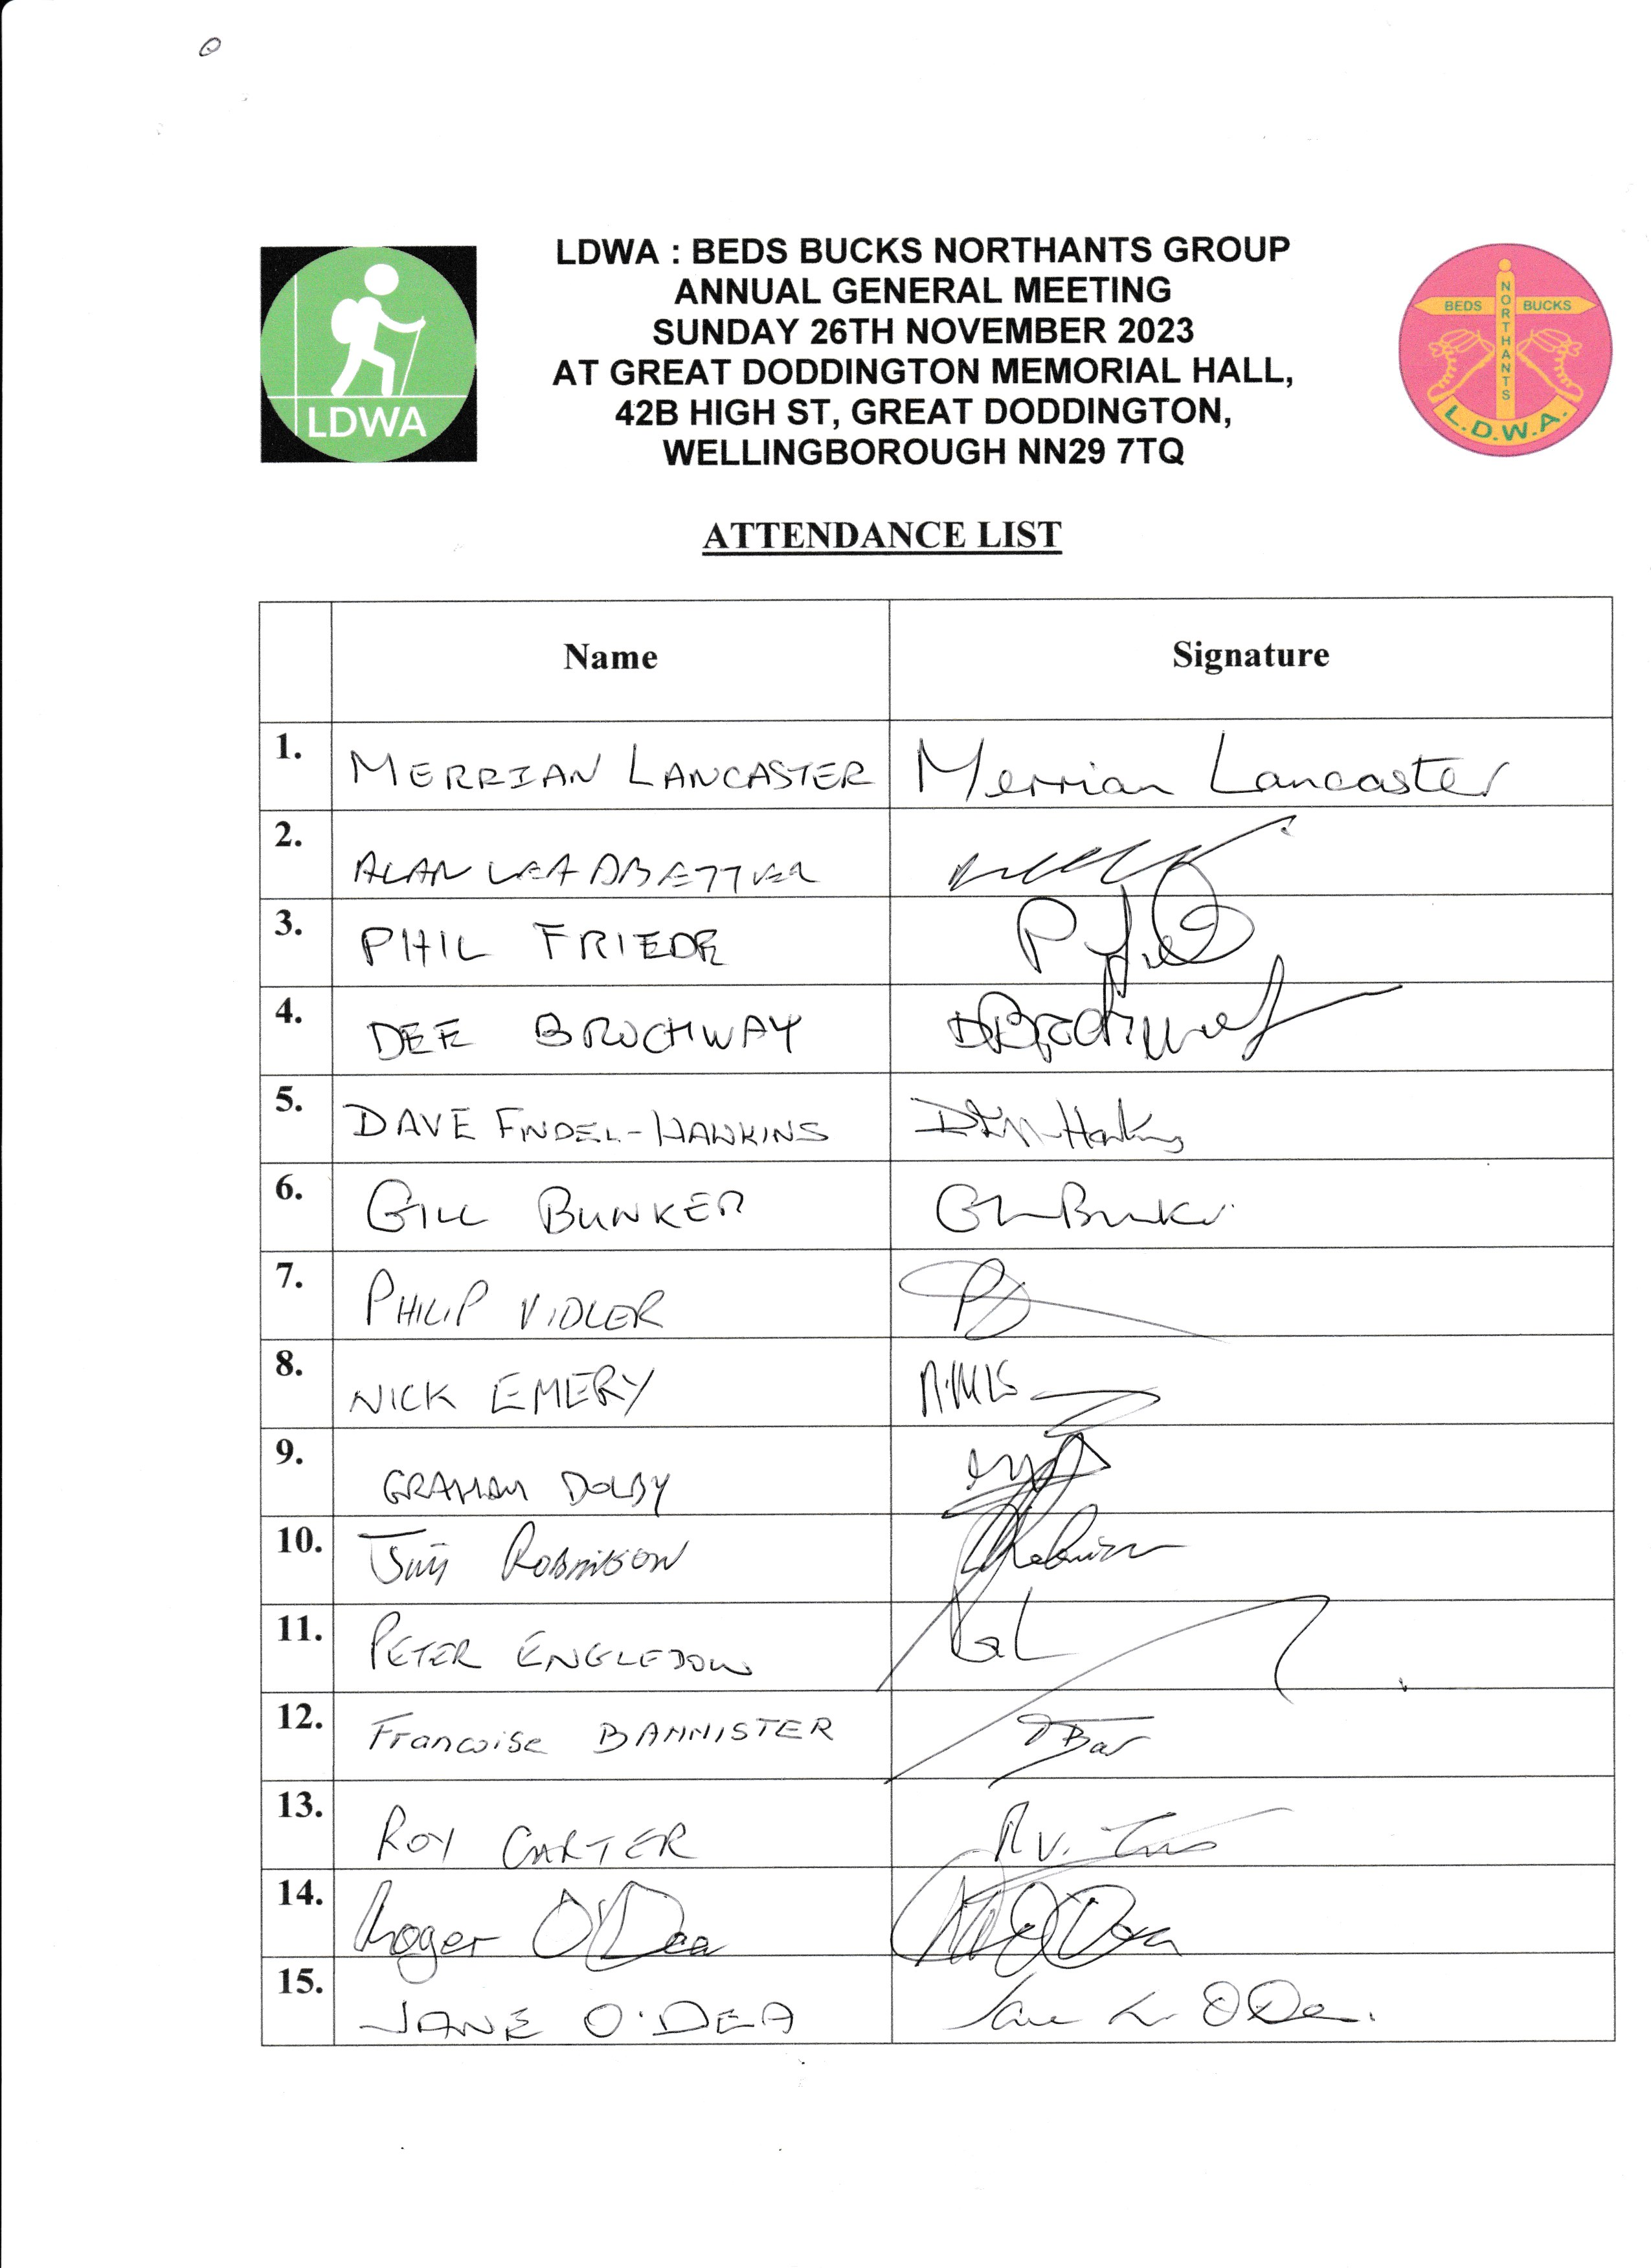 LDWA : BEDS BUCKS NORTHANTS GROUP
ANNUAL GENERAL MEETING
SUNDAY 26TH NOVEMBER 2023
AT GREAT DODDINGTON MEMORIAL HALL,
42B HIGH ST, GREAT DODDINGTON,
WELLINGBOROUGH NN29 7TQ
LDWA
BEDS NORTHANTS BUCKS
L.D.W.A.
ATTENDANCE LIST
Name Signature
1. MERRIAN LANCASTER Merrian Lancaster
2. ALAN LEADBETTER
3. PHIL FRIEDE
4. DEE BROCHWAY
5. DAVE FINDEL-HAWKINS
6. GILL BUNKER
7. PHILIP VIDLER
8. NICK EMERY
9. GRAHAM DOLBY
10. JIM ROBINSON
11. PETER ENGLEDOW
12. Francoise BANNISTER
13. ROY CARTER
14. Roger O'Dea
15. JANE O'DEA